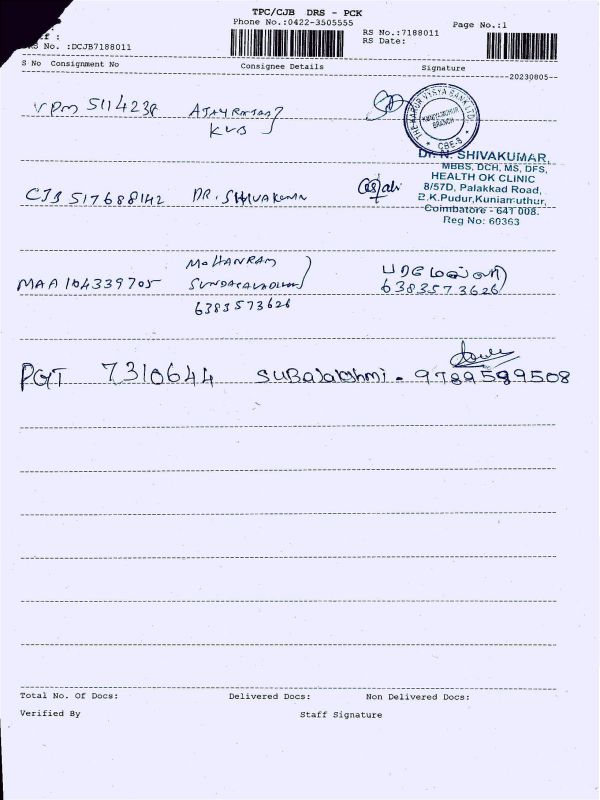 TPC/CJB DRS - PCK
Phone No.:0422-3505555
Page No.:1
RS No.:7188011
RS Date:
DRS No. :DCJB7188011
S No Consignment No Consignee Details Signature
20230805
VPM 5114238 KVB
THE KARUR VYSYA BANK LTD.
BRANCH
CBE-8
Dr. N. SHIVAKUMAR,
MBBS, DCH, MS, DFS,
HEALTH OK CLINIC
8/57D, Palakkad Road,
B.K.Pudur,Kuniamuthur,
Coimbatore - 641 008.
Reg No: 60363
CJB 517688142 DR. SHIVAKUMAR
MAA 104339705 MOHANRAM
6383573626
6383573626
PGT 7310644 SUBALAKSHMI - 9789599508
Total No. Of Docs: Delivered Docs: Non Delivered Docs:
Verified By Staff Signature